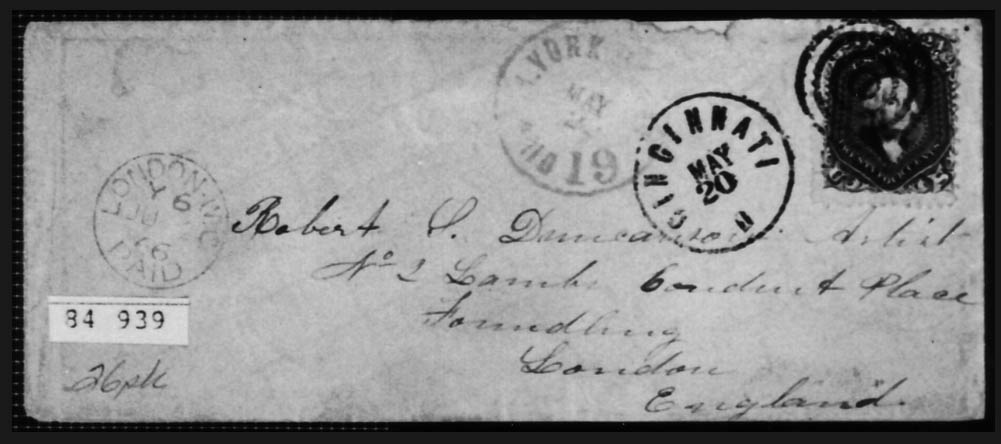 N.YORK
MAY
19
CINCINNATI
MAY
20
LONDON-W.C
Y 6
JU
66
PAID
Robert S. Duncanson Artist
No 2 Lambs Conduit Place
Foundling
London
England.
84 939
26pk